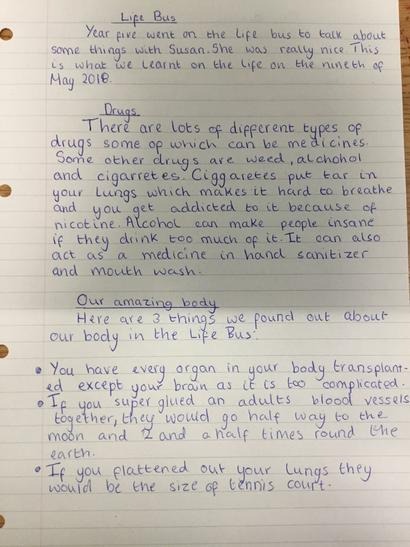 Life Bus
Year five went on the Life bus to talk about
some things with Susan. She was really nice This
is what we Learnt on the life on the nineth of
May 2018.
Drugs
There are lots of different types of
drugs some of which can be medicines.
Some other drugs are weed, alchohol
and cigarretes. Ciggaretes put tar in
your Lungs which makes it hard to breathe
and you get addicted to it because of
nicotine. Alcohol can make people insane
if they drink too much of it. It can also
act as a medicine in hand sanitizer
and mouth wash.
Our amazing body
Here are 3 things we found out about
our body in the Life Bus:
• You have every organ in your body transplant-
ed except your brain as it is too complicated.
• If you super glued an adults blood vessels
together, they would go half way to the
moon and 2 and a half times round the
earth.
• If you flattened out your lungs they
would be the size of tennis court.